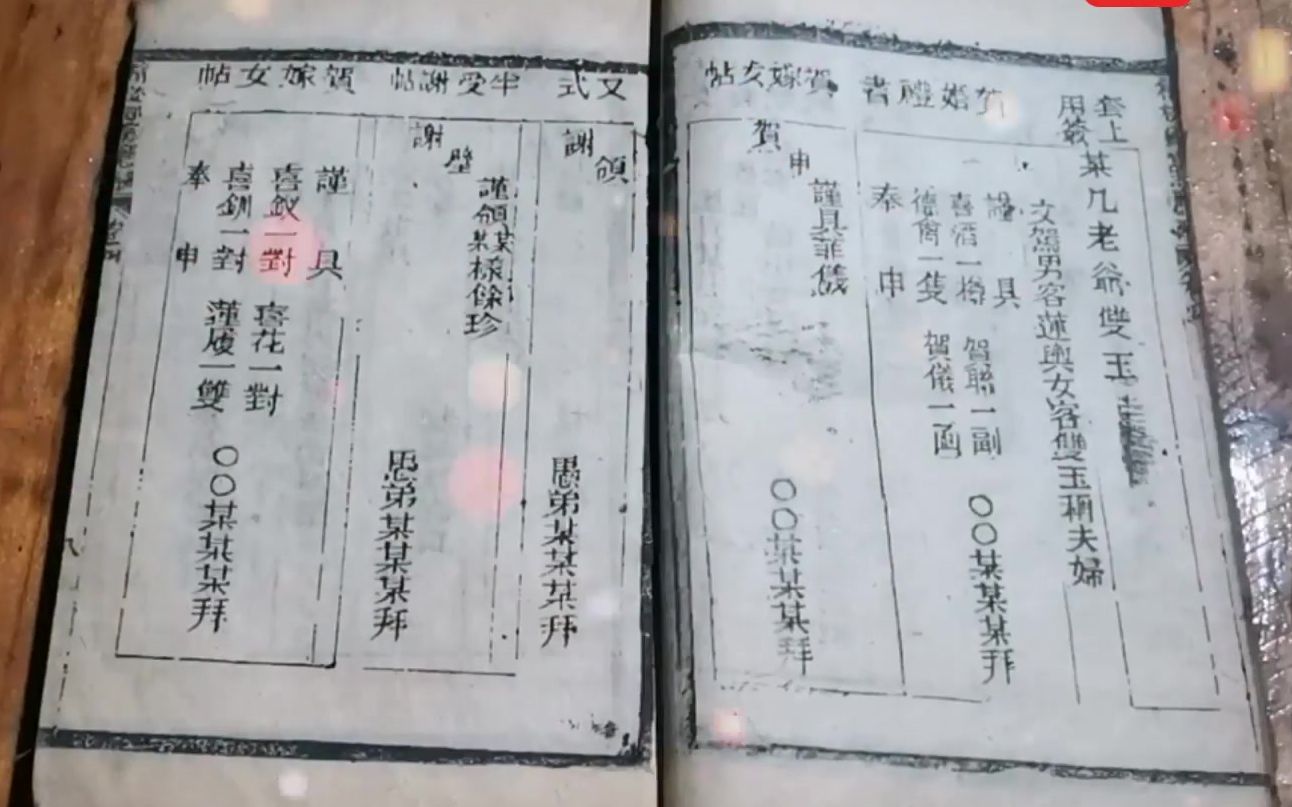 套上
用簽
某几老爺雙玉
文駕男客蓮輿女客雙玉稱夫婦
賀婚禮者
謹具
喜酒一樽 賀聯一副
德禽一隻 賀儀一函
奉申
〇〇某某某拜
賀嫁女帖
謹具菲儀
申
賀
〇〇某某某拜
又式
領
謝
愚弟某某某拜
半受謝帖
謹領某某樣餘珍
璧
謝
愚弟某某某拜
賀嫁女帖
謹具
喜釵一對 喜花一對
喜釧一對 蓮履一雙
奉申
〇〇某某某拜